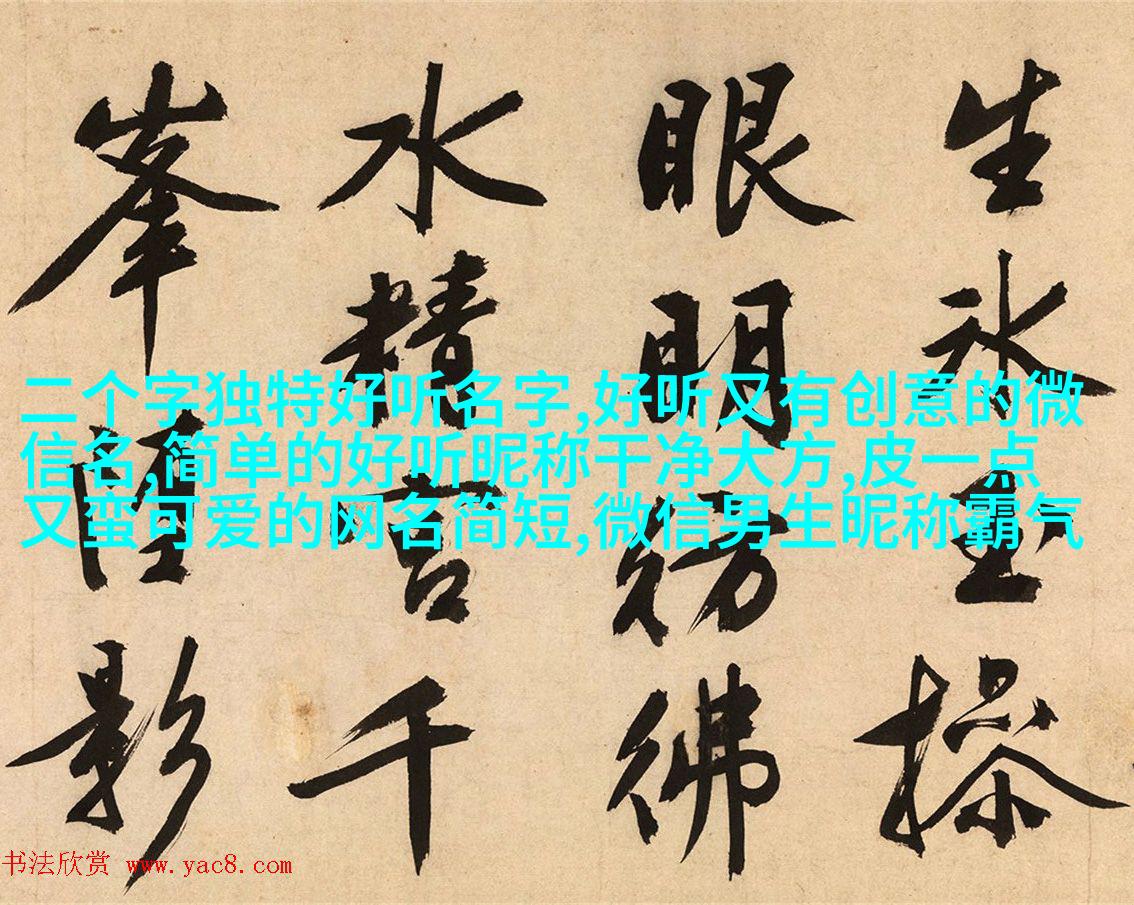 生氷玉操
眼明彷彿
水精宫千
峯影
二个字独特好听名字,好听又有创意的微
信名,简单的好听昵称干净大方,皮一点
又蛮可爱的网名简短,微信男生昵称霸气
书法欣赏 www.yac8.com